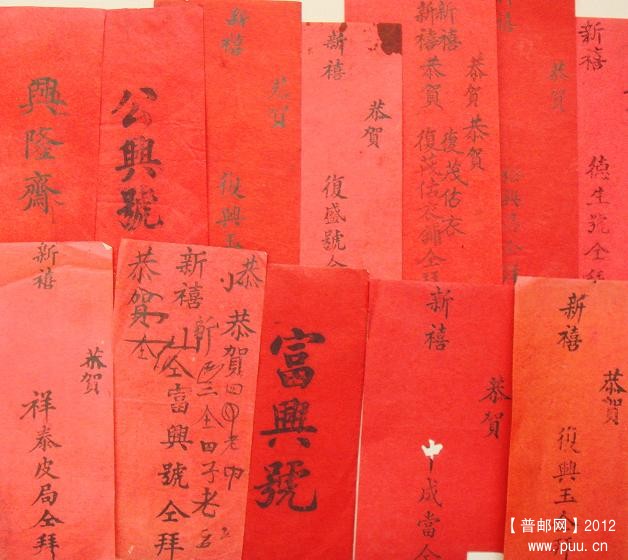 興隆齋
公興號
新禧
恭賀
復興玉
新禧
恭賀
復盛號仝
新禧
恭賀
復茂估衣鋪仝拜
新禧
恭賀
恭賀
復茂估衣
恭賀
仝拜
新禧
德生號仝拜
新禧
恭賀
祥泰皮局仝拜
恭賀
新禧
恭賀
仝富興號仝拜
富興號
新禧
恭賀
中成當仝
新禧
恭賀
復興玉仝拜
【普邮网】2012
www.puu.cn